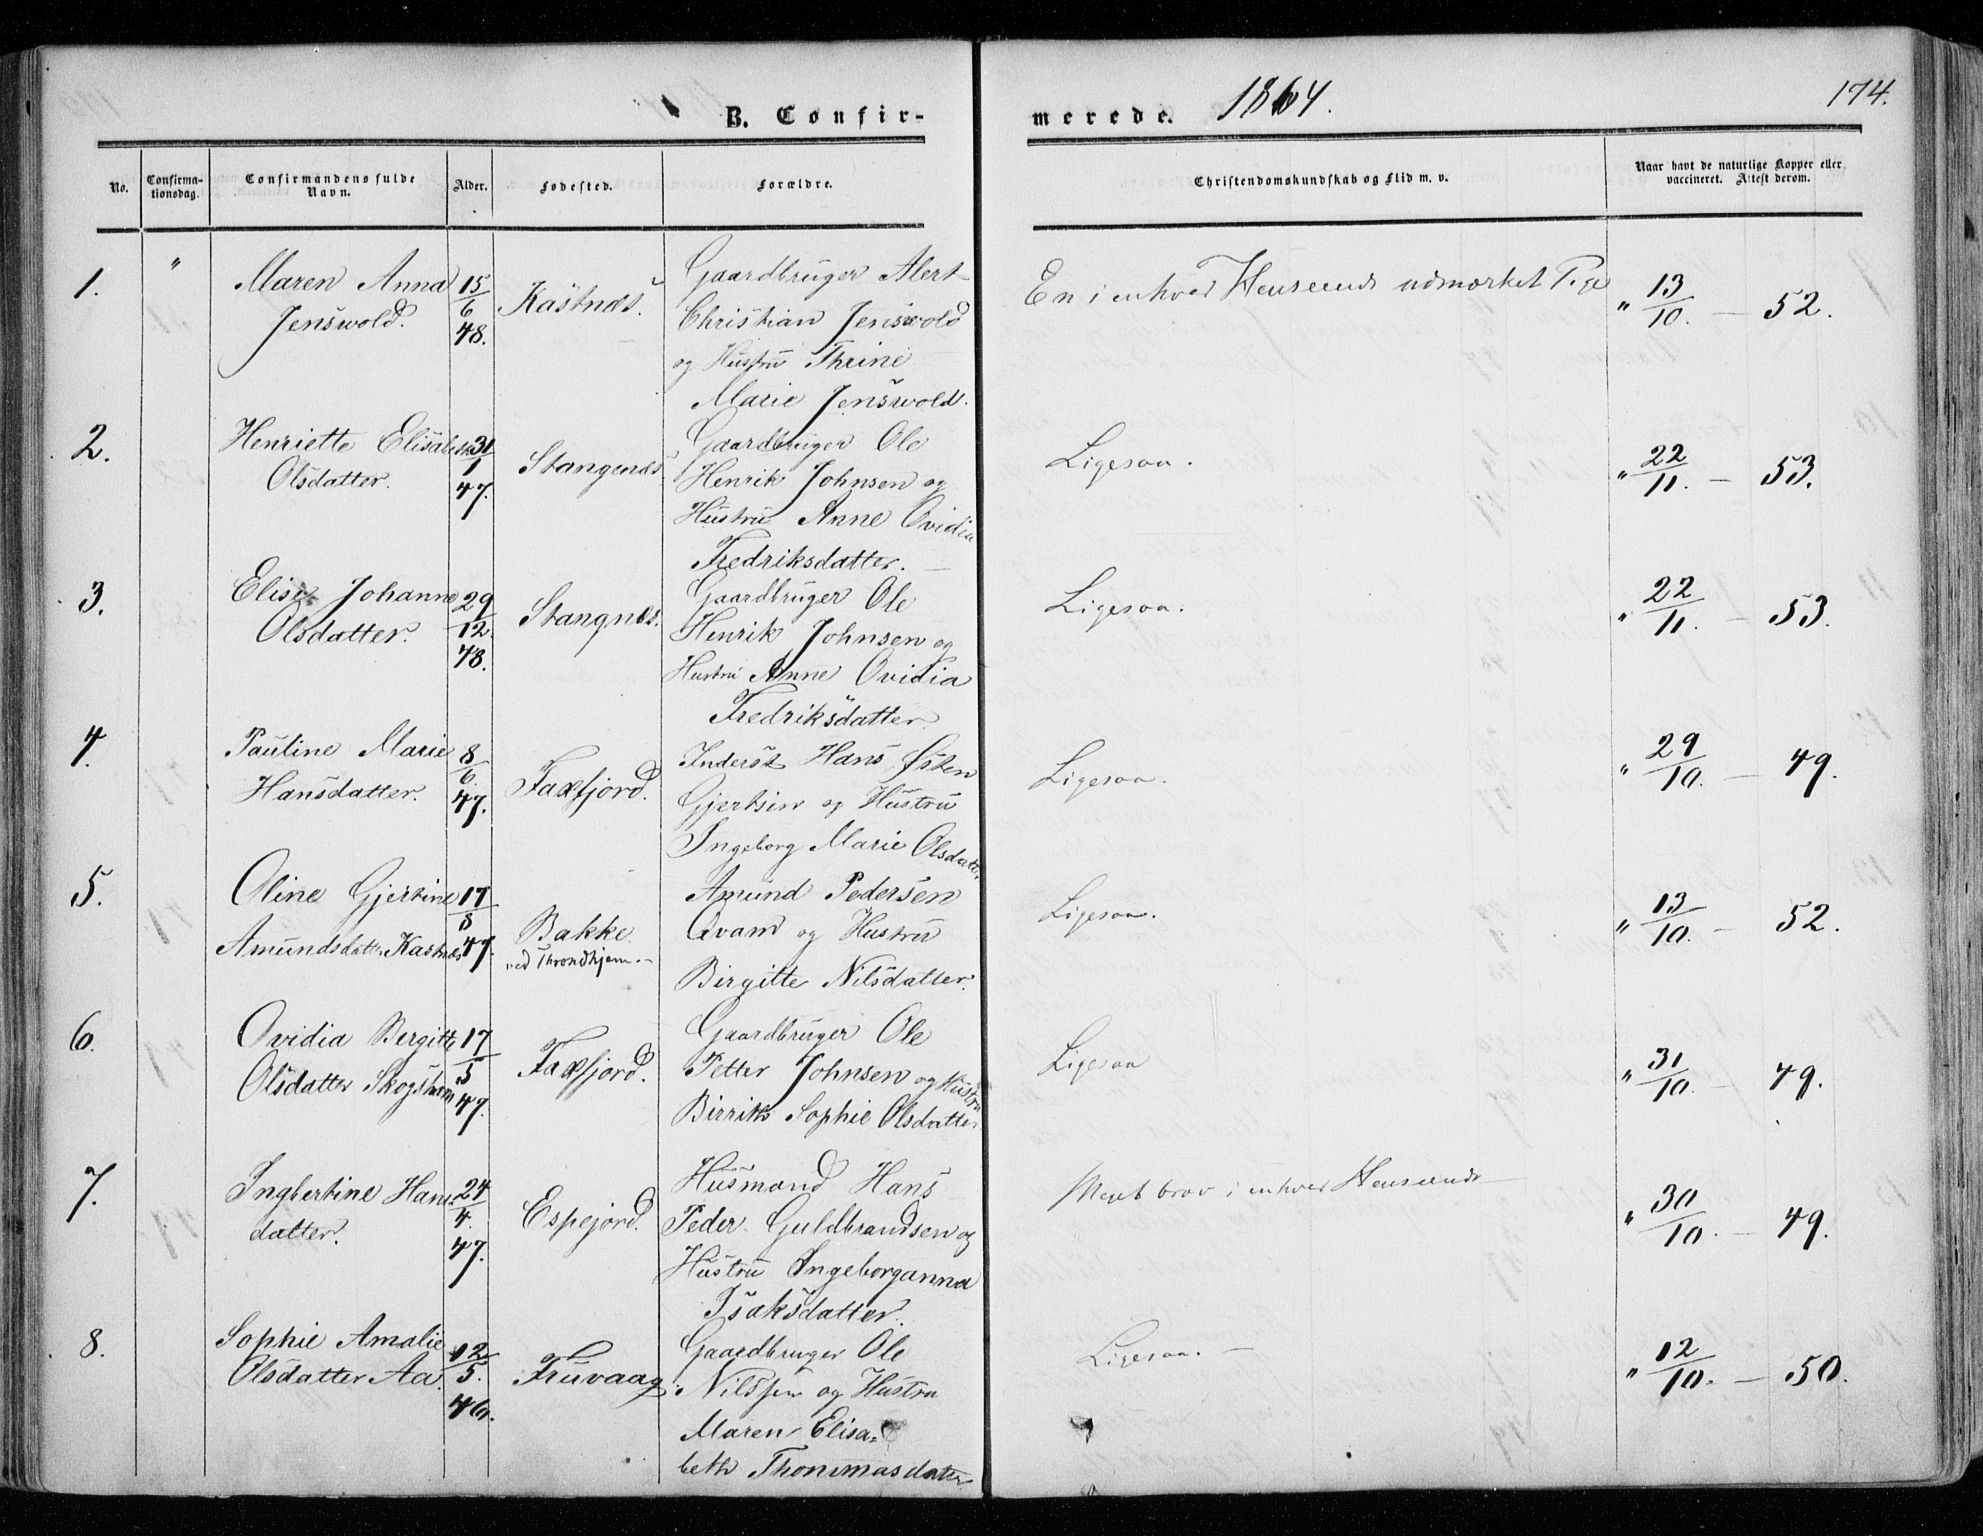 174.
B. Confir-
merede. 1864.
No.
Confirma-
tionsdag.
Confirmandens fulde
Navn.
Alder.
Fødested.
Forældre.
Christendomskundskab og Flid m. v.
Naar havt de naturlige Kopper eller
vaccineret. Attest derom.
1. " Maren Anna 15/6 48. Kastnæs. Gaardbruger Alert
Jenswold. Christian Jenswold
og Hustru Thrine
Marie Jenswold.
En i enhver Henseende udmærket Pige " 13/10. — 52.
2. Henriette Elisabeth 31/1 47. Stangenæs. Gaardbruger Ole
Olsdatter. Henrik Johnsen og
Hustru Anne Ovidia
Fredriksdatter. —
Ligesaa. " 22/11. — 53.
3. Elise Johanne 29/12. 48. Stangnæs. Gaardbruger Ole
Olsdatter. Henrik Johnsen og
Hustru Anne Ovidia
Fredriksdatter
Ligesaa. " 22/11. — 53.
4. Pauline Marie 8/6 47. Faxfjord. Inderst Hans Østen
Hansdatter. Gjertsen og Hustru
Ingeborg Marie Olsdatter
Ligesaa. " 29/10. — 49.
5. Oline Gjertine 17/8 47. Bakke Amund Pedersen
Amundsdatter Kastnæs ved Throndhjem. — Qvam og Hustru
Birgitte Nilsdatter.
Ligesaa. " 13/10. — 52.
6. Ovidia Bergitte 17/5 47. Faxfjord. Gaardbruger Ole
Olsdatter Skogshavn Petter Johnsen og Hustru
Sophie Olsdatter
Ligesaa " 31/10. — 49.
7. Ingbertine Hans 24/4. 47. Espejord. Husmand Hans
datter. Peder Guldbrandsen og
Hustru Ingeborganna
Isaksdatter.
Meget brav i enhver Henseende — " 30/10. — 49.
8. Sophie Amalie 12/5. 46. Truvaag. Gaardbruger Ole
Olsdatter Aa. Nilssen og Hustru
Maren Elisa=
beth Thommasdatter
Ligesaa. — " 12/10. — 50.